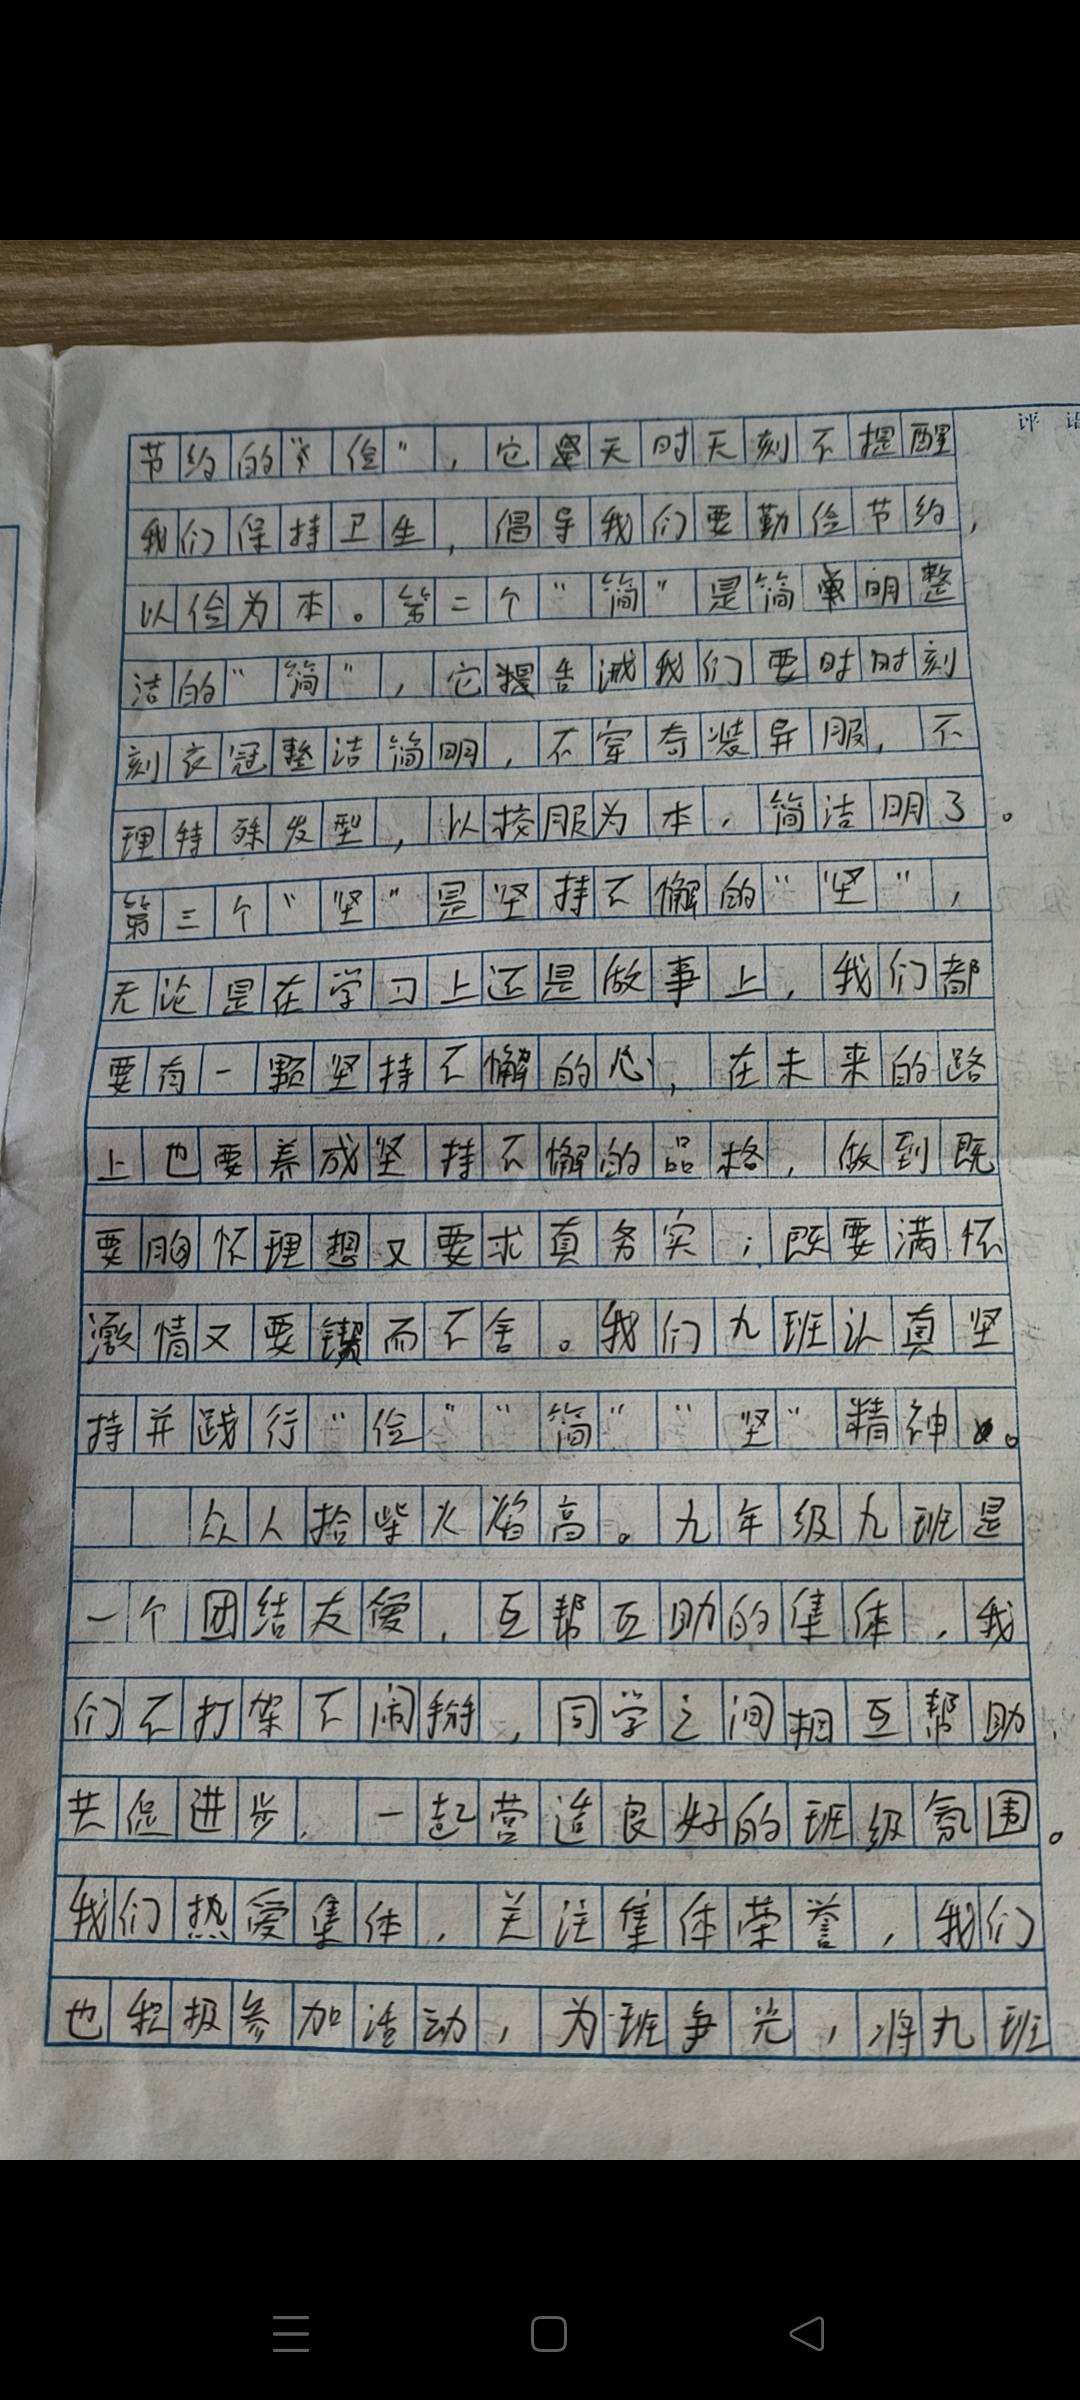 评语
节约的“俭”，它无时无刻不提醒
我们保持卫生，倡导我们要勤俭节约，
以俭为本。第二个“简”是简单明整
洁的“简”，它告诫我们要时时刻
刻衣冠整洁简明，不穿奇装异服，不
理特殊发型，以校服为本，简洁明了。
第三个“坚”是坚持不懈的“坚”，
无论是在学习上还是做事上，我们都
要有一颗坚持不懈的心，在未来的路
上也要养成坚持不懈的品格，做到既
要胸怀理想又要求真务实；既要满怀
激情又要锲而不舍。我们九班认真坚
持并践行“俭”“简”“坚”精神。
众人拾柴火焰高。九年级九班是
一个团结友爱，互帮互助的集体，我
们不打架不闹掰，同学之间相互帮助，
共促进步，一起营造良好的班级氛围。
我们热爱集体，关注集体荣誉，我们
也积极参加活动，为班争光，将九班